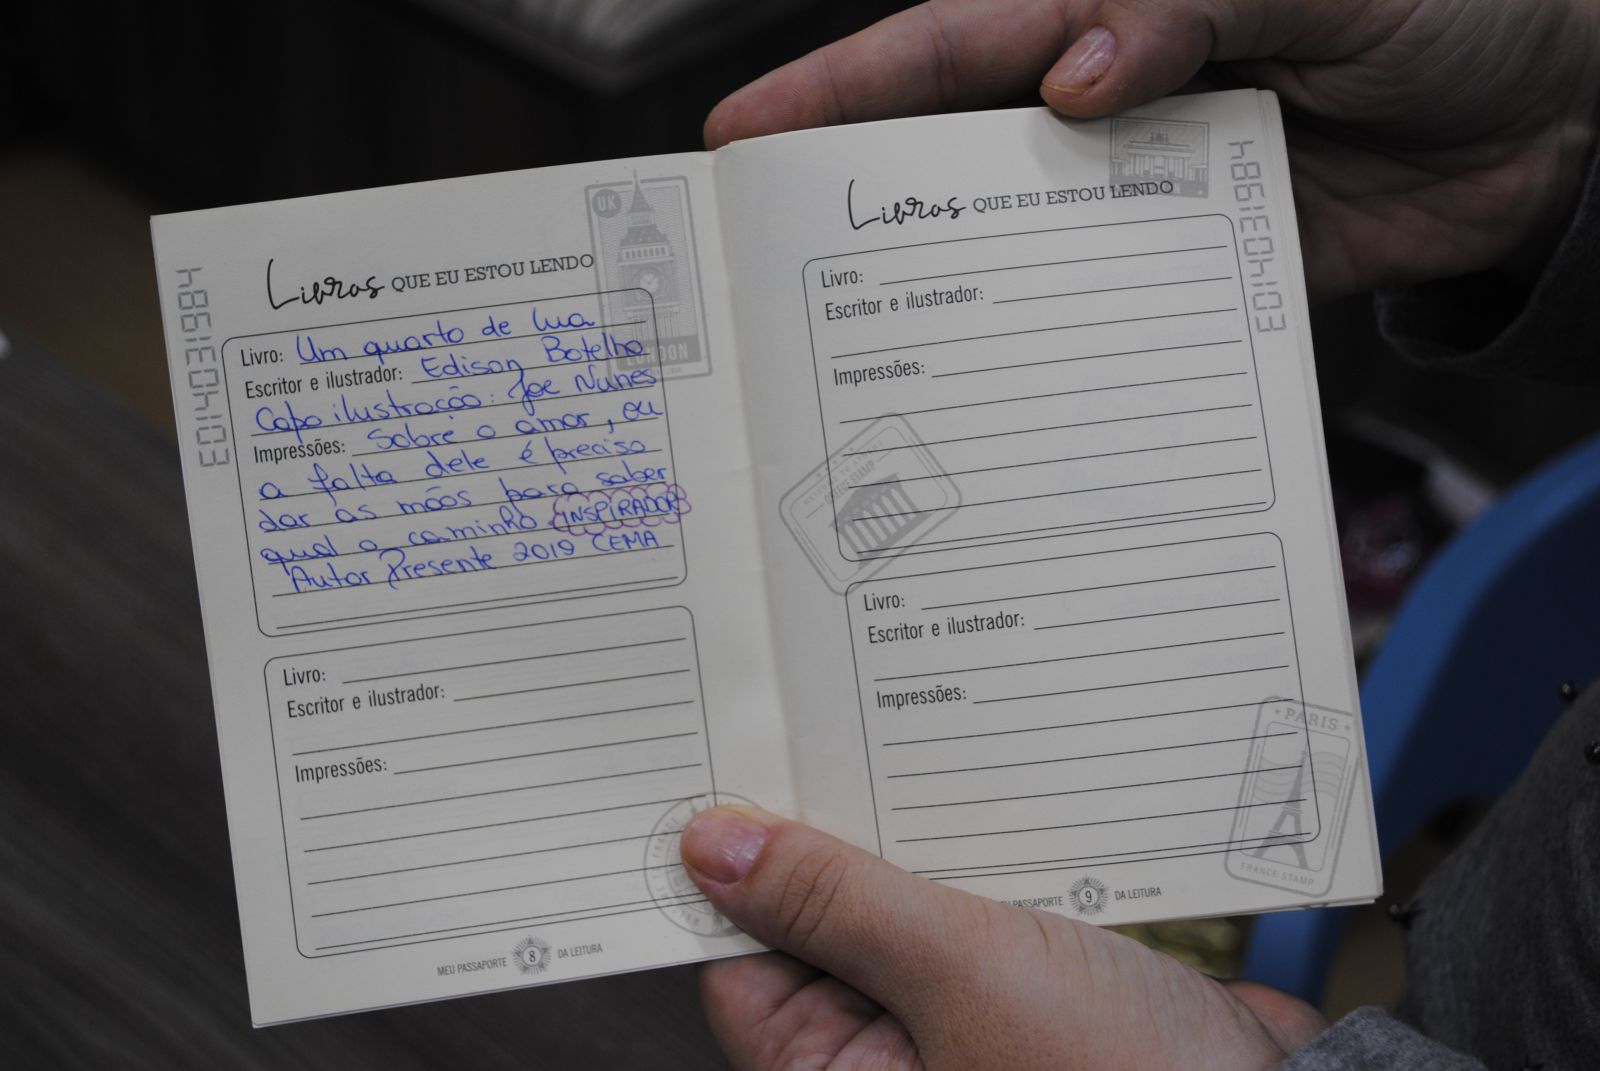 UK
LONDON
Livros QUE EU ESTOU LENDO
Livro: Um quarto de lua
Escritor e ilustrador: Edison Botelho
Capo ilustração: Joe Nunes
Impressões: Sobre o amor, ou
a falta dele é preciso
dar as mãos para saber
qual o caminho INSPIRADOR
Autor Presente 2019 CEMA
Livro:
Escritor e ilustrador:
Impressões:
MEU PASSAPORTE 8 DA LEITURA
Livros QUE EU ESTOU LENDO
Livro:
Escritor e ilustrador:
Impressões:
Livro:
Escritor e ilustrador:
Impressões:
PARIS
FRANCE STAMP
PASSAPORTE 9 DA LEITURA